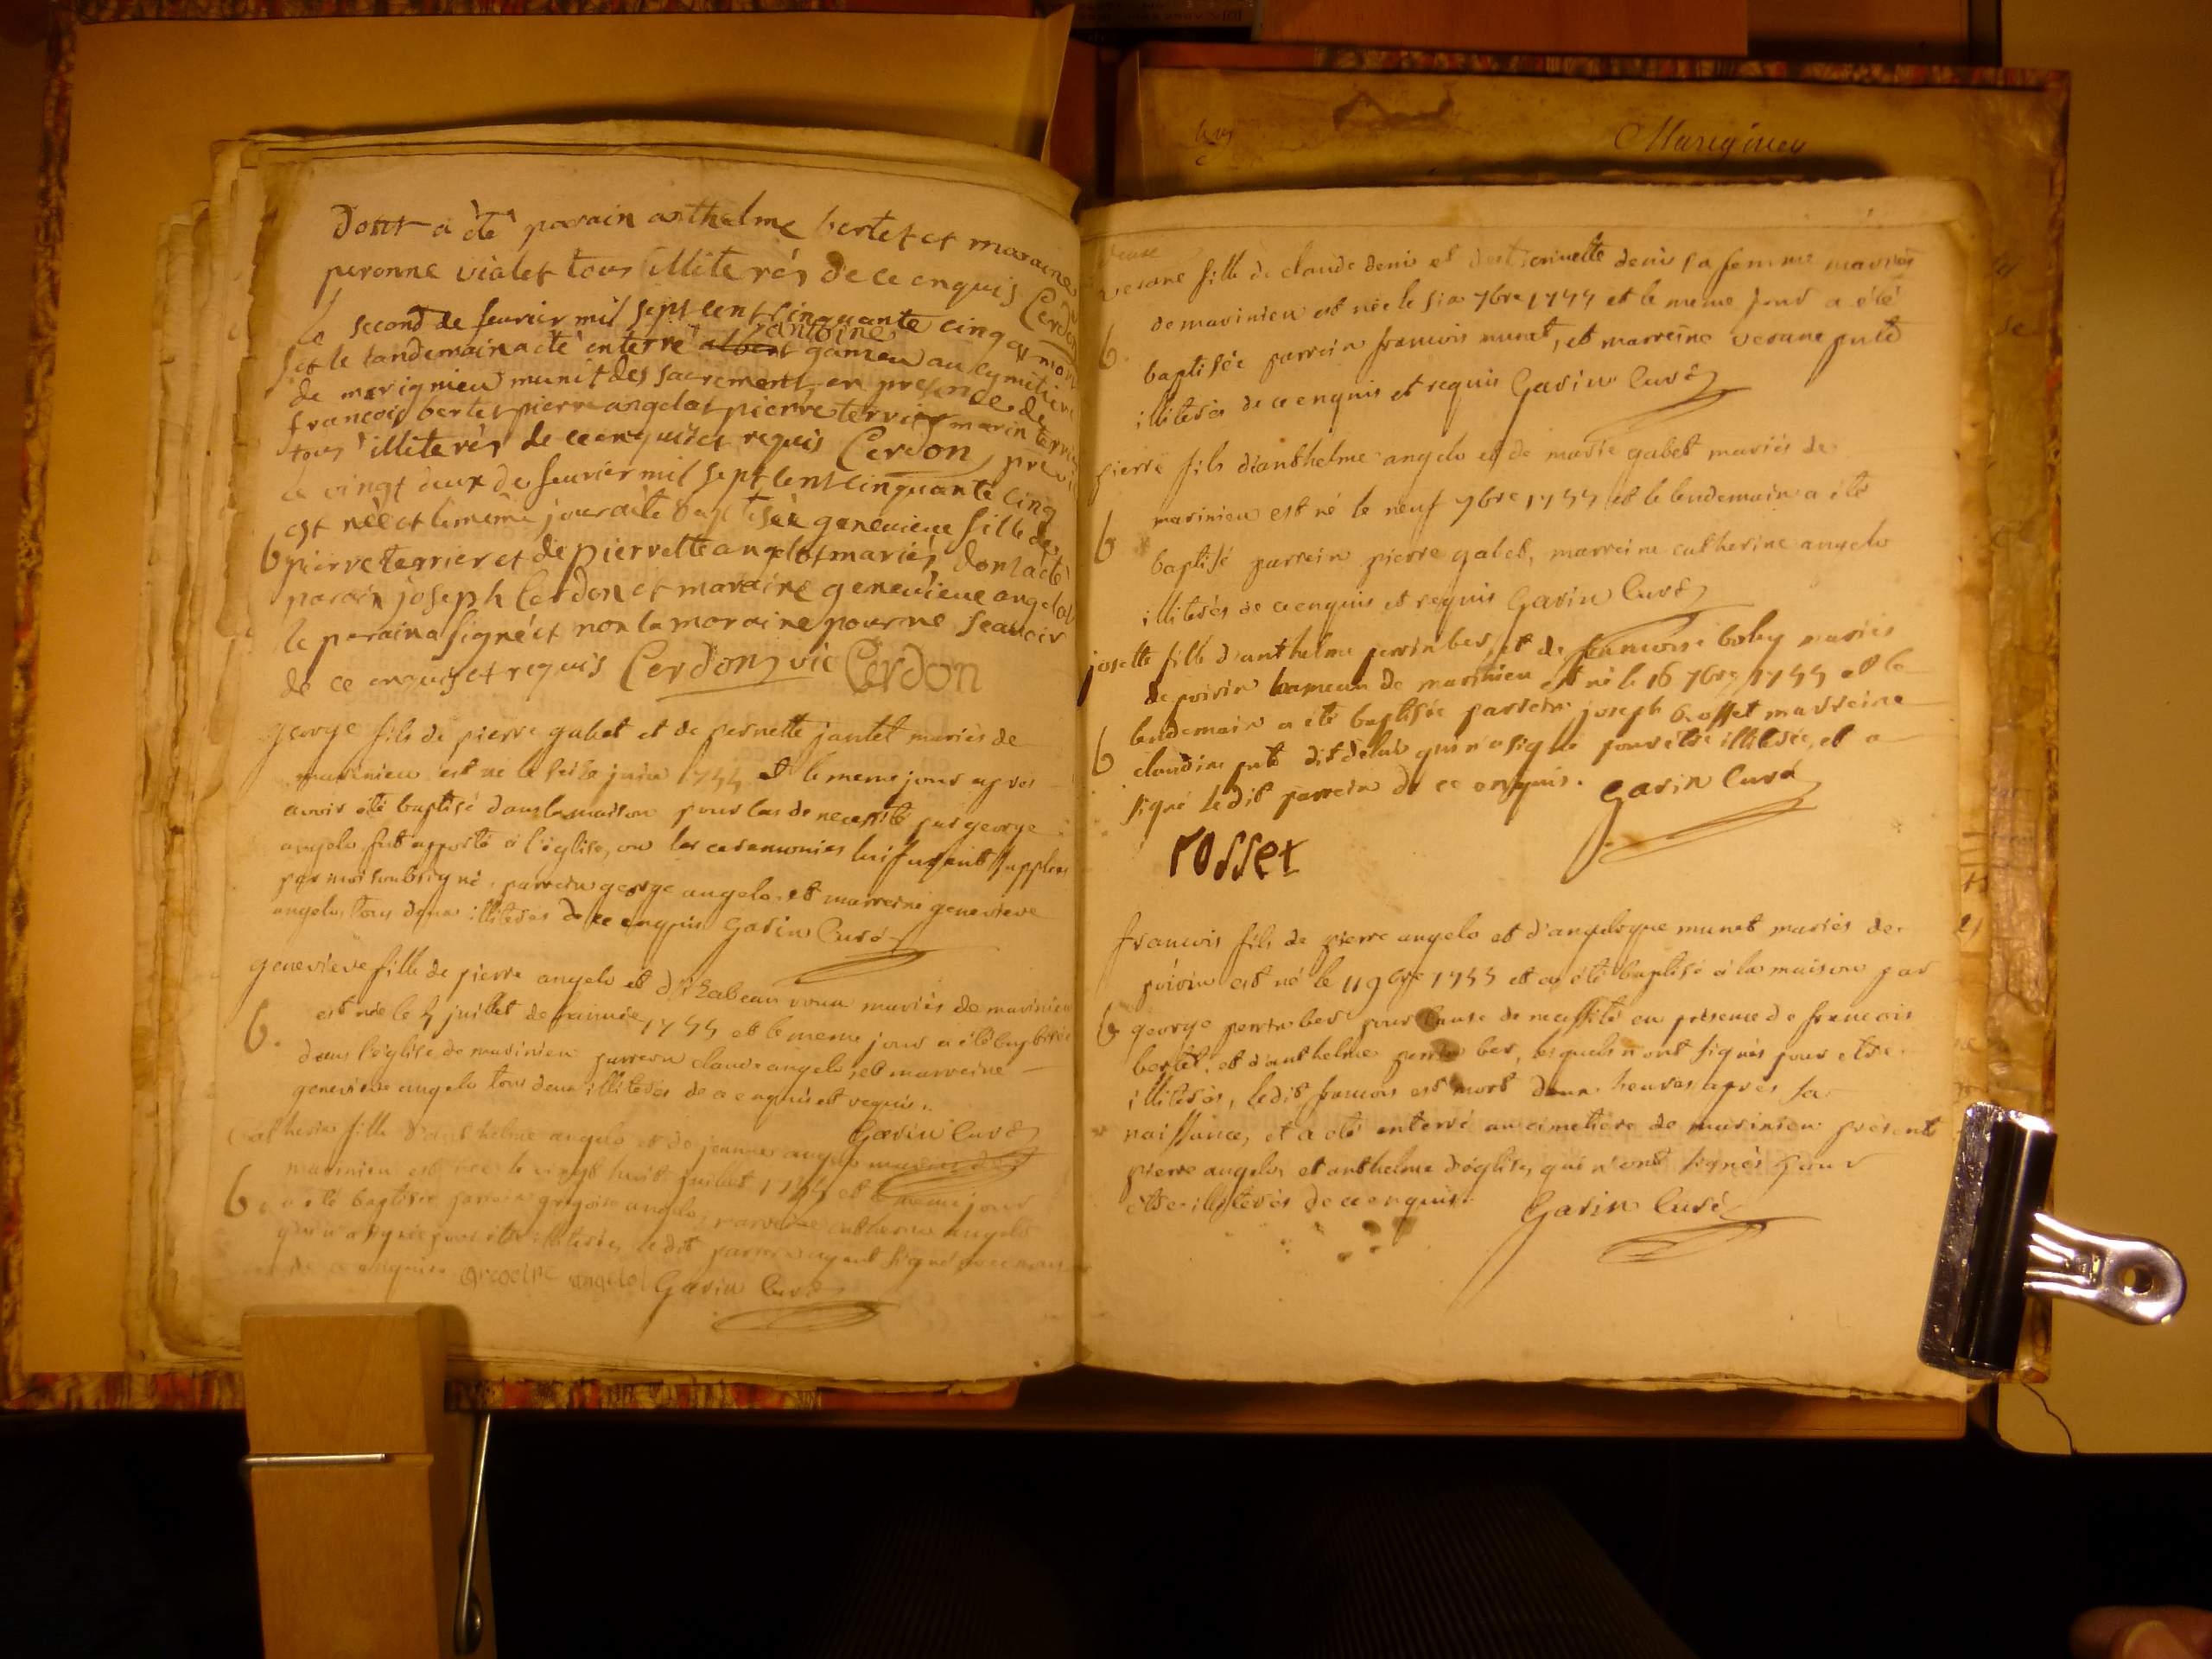 dont a été parain anthelme bertet et maraine
peronne vialet tous illiterés de ce enquis Cerdon
le second de fevrier mil sept cent cinquante cinq est mort
antoine
et le landemain a cté enterré albert gameu au cymitiere
de marignieu munit des sacrements en presence de
francois bertet pierre angelot pierre terrier marin terrier
tous illiterés de ce enquis et requis Cerdon
le vingt deux de fevrier mil sept cent cinquante cinq
est nèè et le mème jour a ètè baptisèe genevieve fille de
b pierre terrier et de pierrette angelot mariés, dont a été
parain joseph Cerdon et maraine genevieve angelot
le parain a signé et non la maraine pour ne scavoir
de ce enquis et requis Cerdon vic Cerdon
george fils de pierre gabet et de pernette jantet mariés de
marinieu est né le seize juin 1755 et le meme jour apres
avoir été baptisé dans la maison pour cas de necessité par george
angelo fut apporté à l'église, ou les ceremonies lui furent supplees
par moi soubsigné, parrein george angelo, et marreine genevieve
angelo, tous deux illiterés de ce enquis Garin Curé
genevieve fille de pierre angelo et d'izabeau mariés de marinieu
b. est née le 5 juillet de l'année 1755 et le meme jour a été baptisée
dans l'église de marinieu parrein claude angelo, et marreine
genevieve angelo tous deux illiterés de ce enquis et requis.
Garin Curé
Catherine fille d'anthelme angelo et de jeanne angelo mariés de
marinieu est née le vingt huit juillet 1755 et le meme jour
b. a été baptisée parrein gregoire angelo, marreine catherine angelo
qui n'a signé pour etre illiterée, le dit parrein ayant signé
de ce enquis. gregoire angelo Garin Curé
Marignieu
verane fille de claude denis et d'estiennette denis sa femme mariés
de marinieu est née le six 7bre 1755 et le meme jour a été
b. baptisée parrein francois munet, et marreine verane puté
illiterés de ce enquis et requis Garin Curé
pierre fils d'anthelme angelo et de marie gabet mariés de
marinieu est né le neuf 7bre 1755 et le lendemain a été
b baptisé parrein pierre gabet, marreine catherine angelo
illiterés de ce enquis et requis Garin Curé
josette fille d'anthelme perrin ber, et de francoise boley mariés
de poirin hameau de marinieu est né le 16 7bre 1755 et le
lendemain a été baptisée parrein joseph rosset marreine
b claudine puté dit qui n'a signé pour etre illiterée, et a
signé ledit parrein de ce enquis. Garin Curé
rosset
francois fils de pierre angelo et d'angelique munet mariés de
poirin est né le 11 9bre 1755 et a été baptisé à la maison par
b george perrin ber pour cause de necessité en présence de francois
bertet, et d'anthelme perrin ber, lesquels n'ont signés pour etre
illiterés, ledit francois est mort deux heures après sa
naissance, et a été enterré au cimetiere de marinieu présents
pierre angelo, et anthelme d'église, qui n'ont signés pour
etre illiterés de ce enquis. Garin Curé